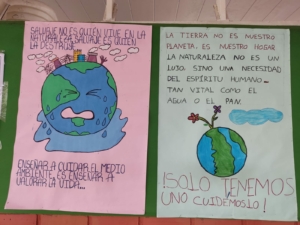 SALVAJE NO ES QUIEN VIVE EN LA
NATURALEZA, SALVAJE ES QUIEN
LA DESTRUYE
ENSEÑAR A CUIDAR EL MEDIO
AMBIENTE, ES ENSEÑAR A
VALORAR LA VIDA...
LA TIERRA NO ES NUESTRO
PLANETA, ES NUESTRO HOGAR
LA NATURALEZA NO ES UN
LUJO, SINO UNA NECESIDAD
DEL ESPÍRITU HUMANO-
TAN VITAL COMO EL
AGUA O EL PAN.
¡SOLO TENEMOS
UNO CUIDÉMOSLO!